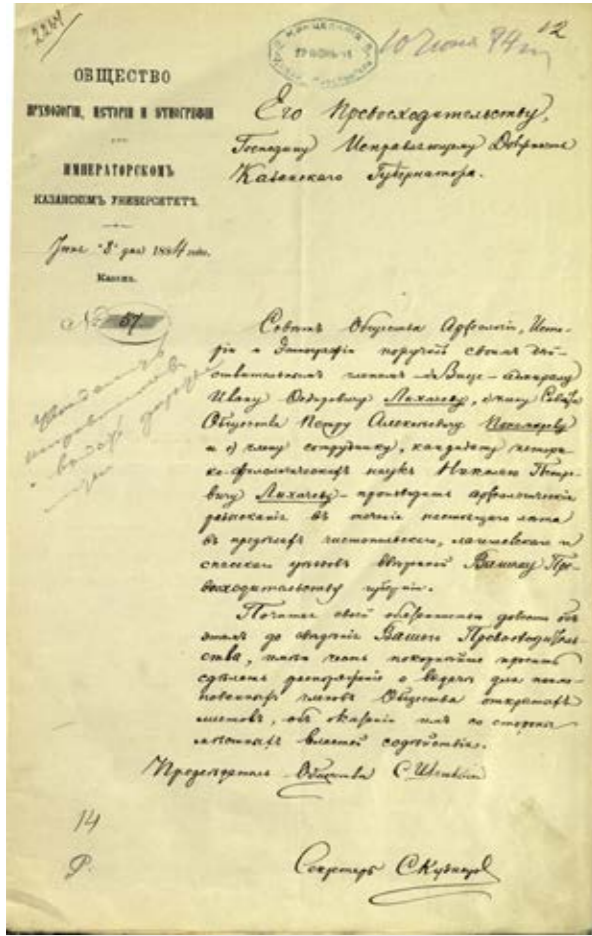 2241
12
10 Июня 84 г.
ОБЩЕСТВО
АРХЕОЛОГІИ, ИСТОРІИ И ЭТНОГРАФІИ
ПРИ
ИМПЕРАТОРСКОМЪ
КАЗАНСКОМЪ УНИВЕРСИТЕТѢ.
Іюня "8" дня 1884 года.
Казань.
№ 57
Его Превосходительству,
Господину Исправляющему Должность
Казанскаго Губернатора.
Совѣтъ Общества Археологіи, Исто-
ріи и Этнографіи поручилъ своимъ дѣй-
ствительнымъ членамъ Вице-адмиралу
Ивану Ѳедоровичу Лихачеву, члену Совѣта
Общества Петру Алексѣевичу Пономареву
и члену сотруднику, кандидату истори-
ко-филологическихъ наукъ Николаю Петро-
вичу Лихачеву – произвести археологическія
разысканія въ теченіе настоящаго лѣта
въ предѣлахъ чистопольскаго, лаишевскаго и
спасскаго уѣздовъ ввѣренной Вашему Пре-
восходительству губерніи.
Почитая своей обязанностью довести объ
этомъ до свѣдѣнія Вашего Превосходитель-
ства, имѣю честь покорнѣйше просить
сдѣлать распоряженіе о выдачѣ для поиме-
нованныхъ членовъ Общества открытыхъ
листовъ, объ оказаніи имъ со стороны
мѣстныхъ властей содѣйствія.
Предсѣдатель Общества С.
Секретарь С. Кузнецов
14
Р.